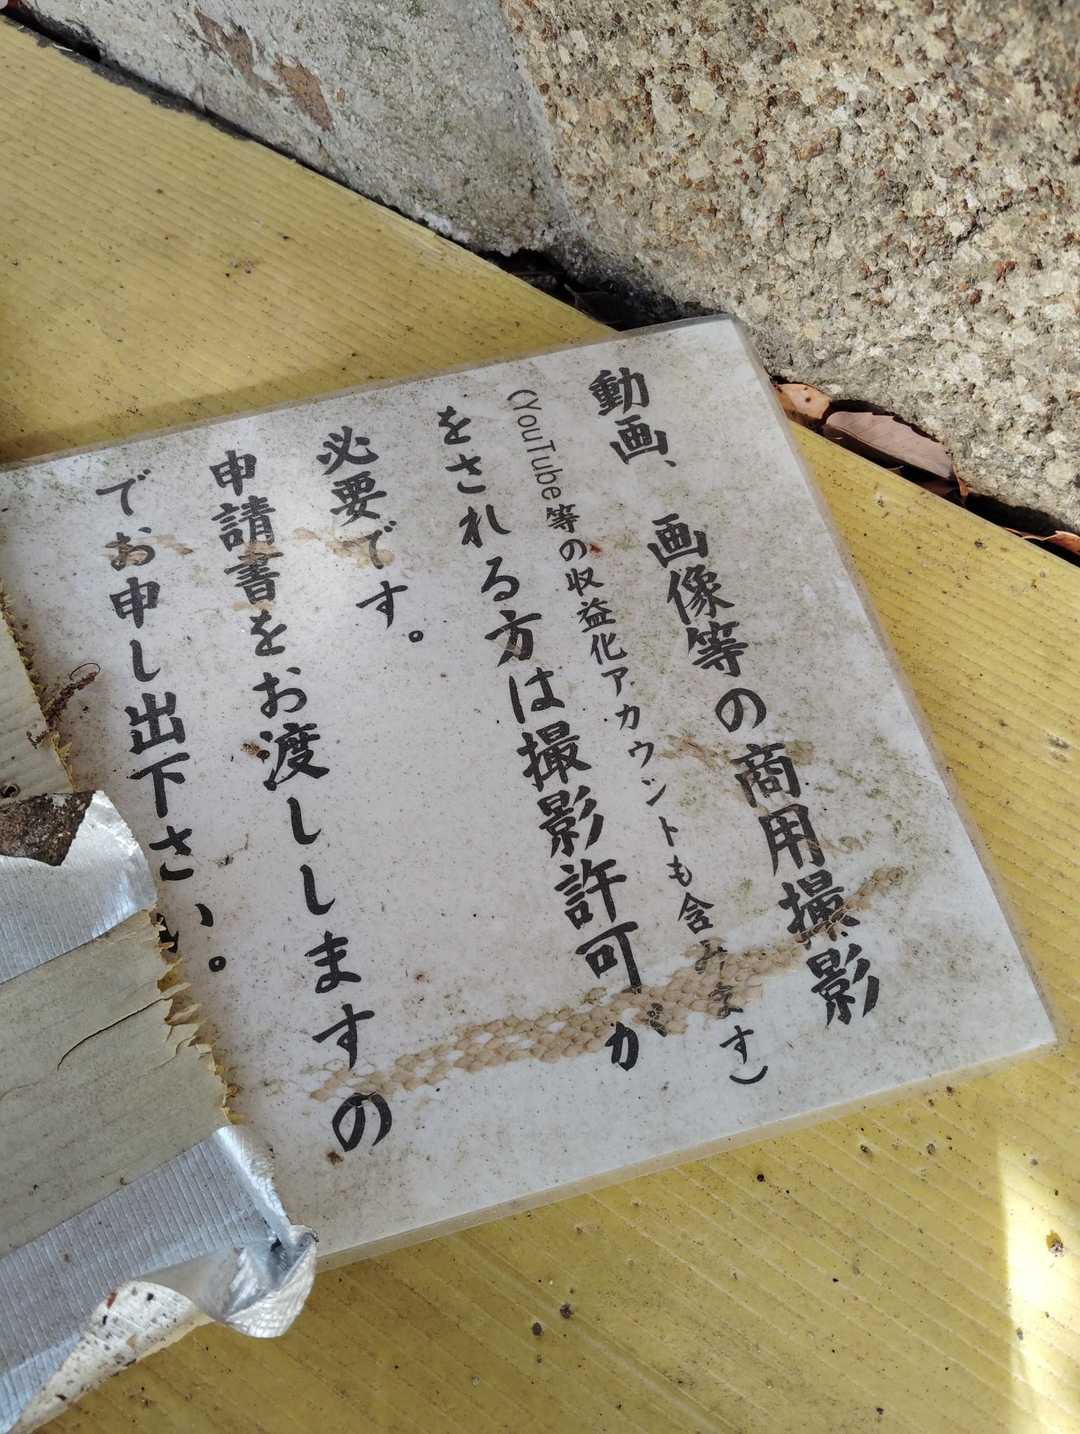 動画、画像等の商用撮影
(YouTube等の収益化アカウントも含みます)
をされる方は撮影許可が
必要です。
申請書をお渡ししますの
でお申し出下さい。